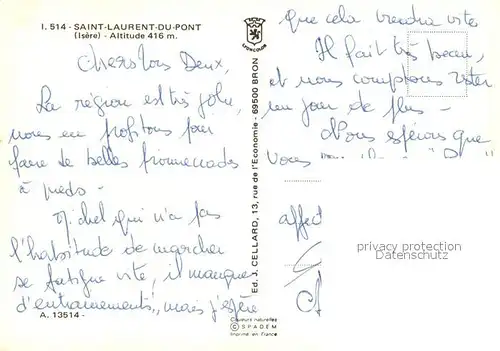 I. 514 - SAINT-LAURENT-DU-PONT
(Isère) - Altitude 416 m.
Chers tous Deux,
La région est très jolie,
nous en profitons pour
faire de belles promenades
à pieds -
Michel qui n'a pas
l'habitude de marcher
se fatigue vite, il manque
d'entrainements!, mais j'espère
A. 13514 -
LYONCOLOR
Ed. J. CELLARD, 13, rue de l'Economie - 69500 BRON
Couleurs naturelles
© SPADEM
Imprimé en France
que cela viendra vite
Il fait très beau,
et nous comptons rester
un jour de plus -
Nous espérons que
Vous
affect
privacy protection
Datenschutz